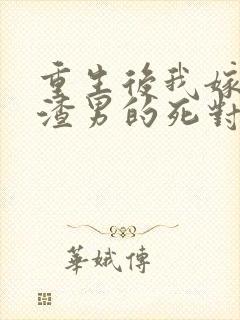 重生後我嫁
渣男的死對
華娥傳